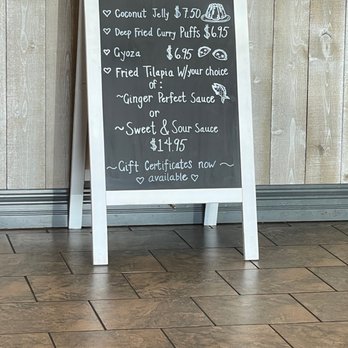 ♡ Coconut Jelly $7.50
♡ Deep Fried Curry Puffs $6.95
♡ Gyoza $6.95
♡ Fried Tilapia W/your choice
of:
~Ginger Perfect Sauce
or
~Sweet & Sour Sauce
$14.95
~Gift Certificates now~
♡ available ♡